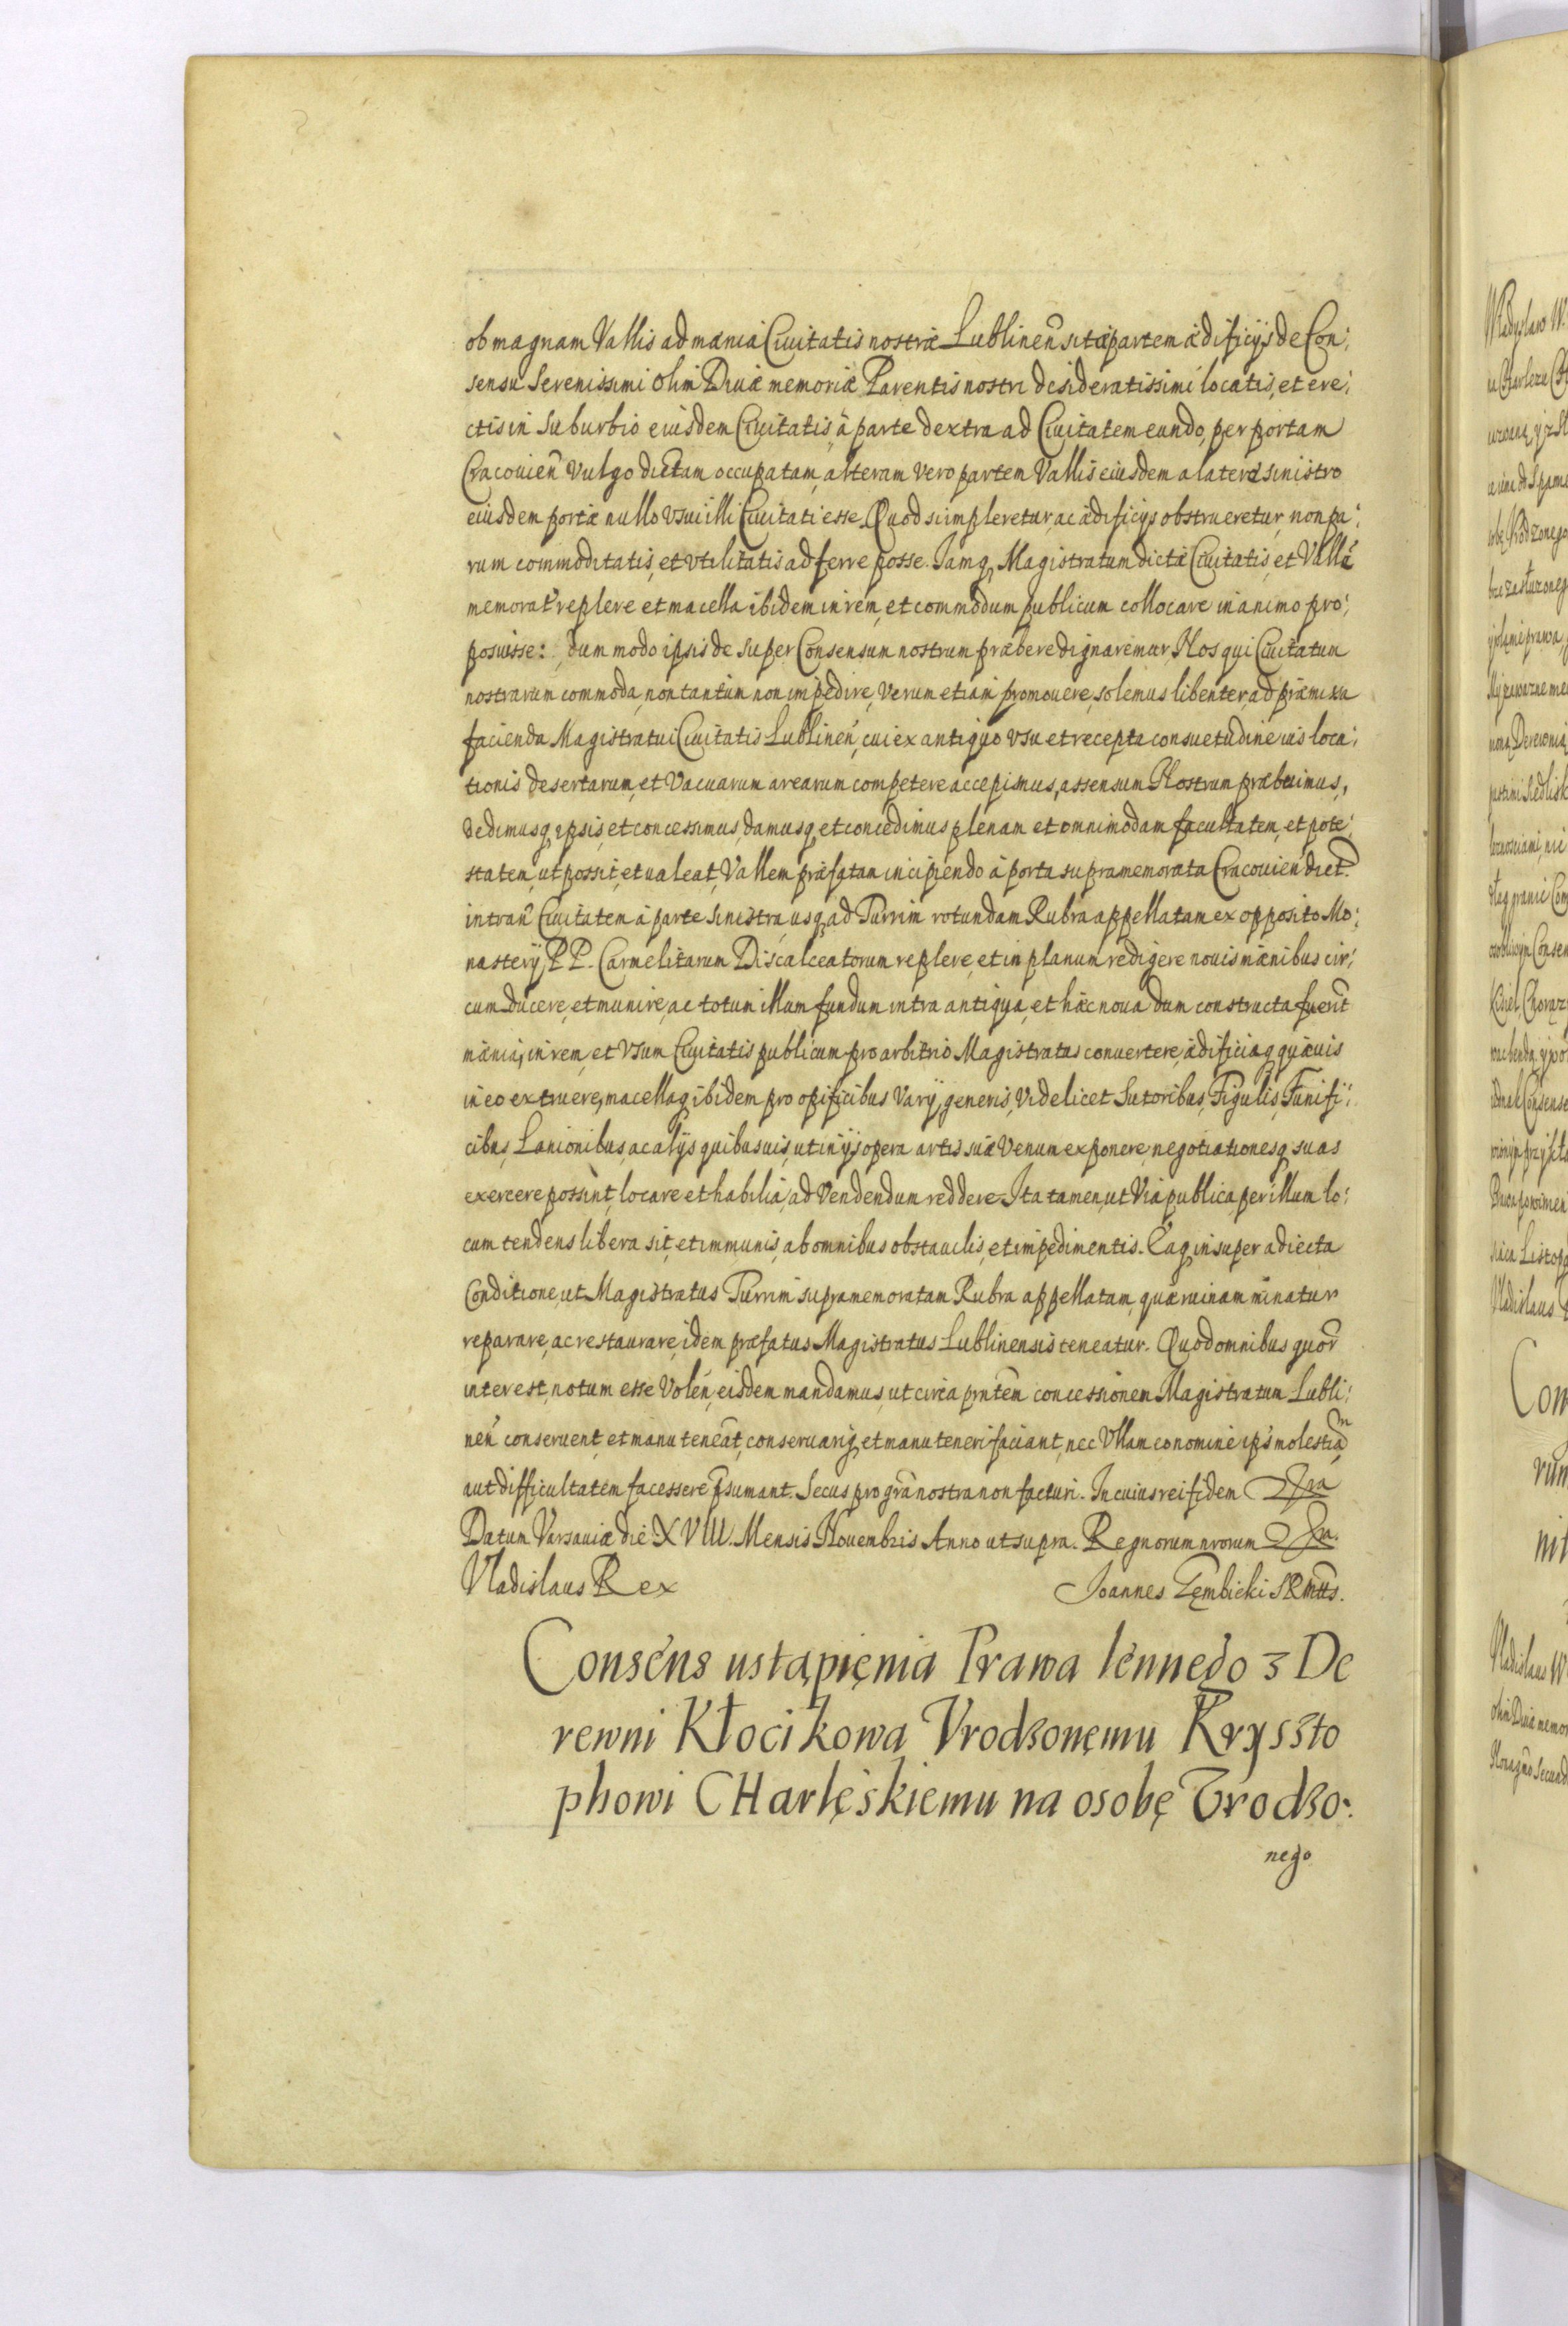 ob magnam Vallis ad mænia Ciuitatis nostræ Lublineñ sitæ partem ædificijs de Con:
sensu Serenissimi olim Diuæ memoriæ Parentis nostri desideratissimi locatis, et ere:
ctis in Suburbio eiusdem Ciuitatis à parte dextra ad Ciuitatem eundo, per portam
Cracouieñ Vulgo dictam occupatam, alteram vero partem Vallis eiusdem a latere sinistro
eiusdem portæ nullo vsui illi Ciuitati esse. Quod si impleretur, ac ædificijs obstrueretur, non pa:
rum commoditatis, et vtilitatis adferre posse. Jamq Magistratum dictæ Ciuitatis, et Vallē
memorat replere et macella ibidem in rem, et commodum publicum collocare in animo pro:
posuisse: dum modo ipsis de super Consensum nostrum præbere dignaremur. Nos qui Ciuitatum
nostrarum commoda, non tantum non impedire, verum etiam promouere, solemus libenter, ad præmissa
facienda Magistratui Ciuitatis Lublineñ, cui ex antiquo vsu et recepta consuetudine ius loca:
tionis desertarum, et Vacuarum arearum competere accepimus, assensum Nostrum præbuimus,
dedimusq ipsis, et concessimus, damusq et concedimus plenam et omnimodam facultatem, et pote:
statem, ut possit, et ualeat, Vallem præfatam incipiendo à porta supramemorata Cracouieñ dict
intrañ Ciuitatem à parte sinistra, usq ad Turrim rotundam Rubra appellatam ex opposito Mo:
nasterij P P. Carmelitarum Discalceatorum replere, et in planum redigere nouis mænibus cir:
cumducere, et munire, ac totum illum fundum intra antiqua, et hæc noua dum constructa fuerit
mænia, in rem, et Vsum Ciuitatis publicum pro arbitrio Magistratus conuertere, ædificiaq quæuis
in eo extruere, macellaq ibidem pro opificibus Varij generis, Videlicet Sutoribus, Figulis, Funifi:
cibus, Lanionibus, ac alijs quibusuis, ut in ijs opera artis suæ Venum exponere, negotiationesq suas
exercere possint, locare et habilia, ad Vendendum reddere. Ita tamen, ut Via publica, per illum lo:
cum tendens libera sit, et immunis, ab omnibus obstaculis, et impedimentis. Eaq insuper adiecta
Conditione, ut Magistratus Turrim supramemoratam Rubra appellatam, quæ ruinam minatur
reparare, ac restaurare, idem præfatus Magistratus Lublinensis teneatur. Quod omnibus quor
interest, notum esse Voleñ, eisdem mandamus, ut circa pntem concessionem Magistratum Lubli:
neñ conseruent, et manu teneat, conseruariq, et manu teneri faciant, nec Vllam eo nomine ipsi molestiam
aut difficultatem facessere psumant. Secus pro gra nostra non facturi. In cuius rei fidem &tra
Datum Varsauiæ die XVIII. Mensis Nouembris Anno ut supra. Regnorum nrorum &tra.
Vladislaus Rex Joannes Gębicki SRMtts.
Consens ustąpięnia Prawa lennego z De
rewni Kłocikowa Vrodzonęmu Kryszto
phowi CHarlęskiemu na osobę Vrodzo:
nego